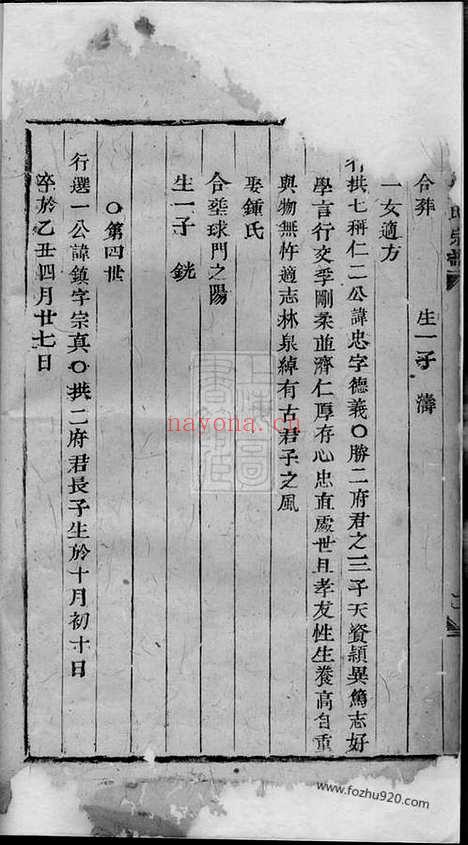 合葬　　　生一子　濤
一女適方
行拱七稱仁二公諱忠字德義〇勝二府君之三子天資穎異篤志好
學言行交孚剛柔並濟仁厚存心忠直處世且孝友性生養高自重
與物無忤適志林泉綽有古君子之風
娶鍾氏
合塟球門之陽
生一子　銧
〇第四世
行選一公諱鎮字宗真〇拱二府君長子生於十月初十日
卒於乙丑四月廿七日
nayona.cn
www.fozhu920.com